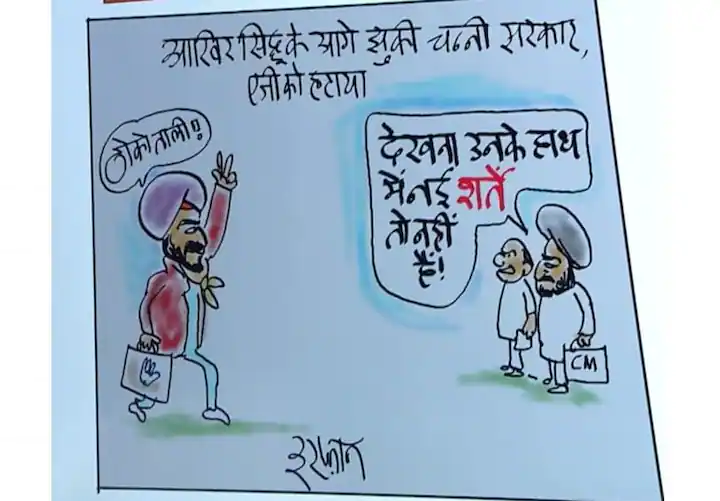 आखिर सिद्धू के आगे झुकी चन्नी सरकार,
एजी को हटाया
ठोको ताली!!
देखना उनके हाथ
में नई शर्तें
तो नहीं
हैं!
CM
इरफ़ान